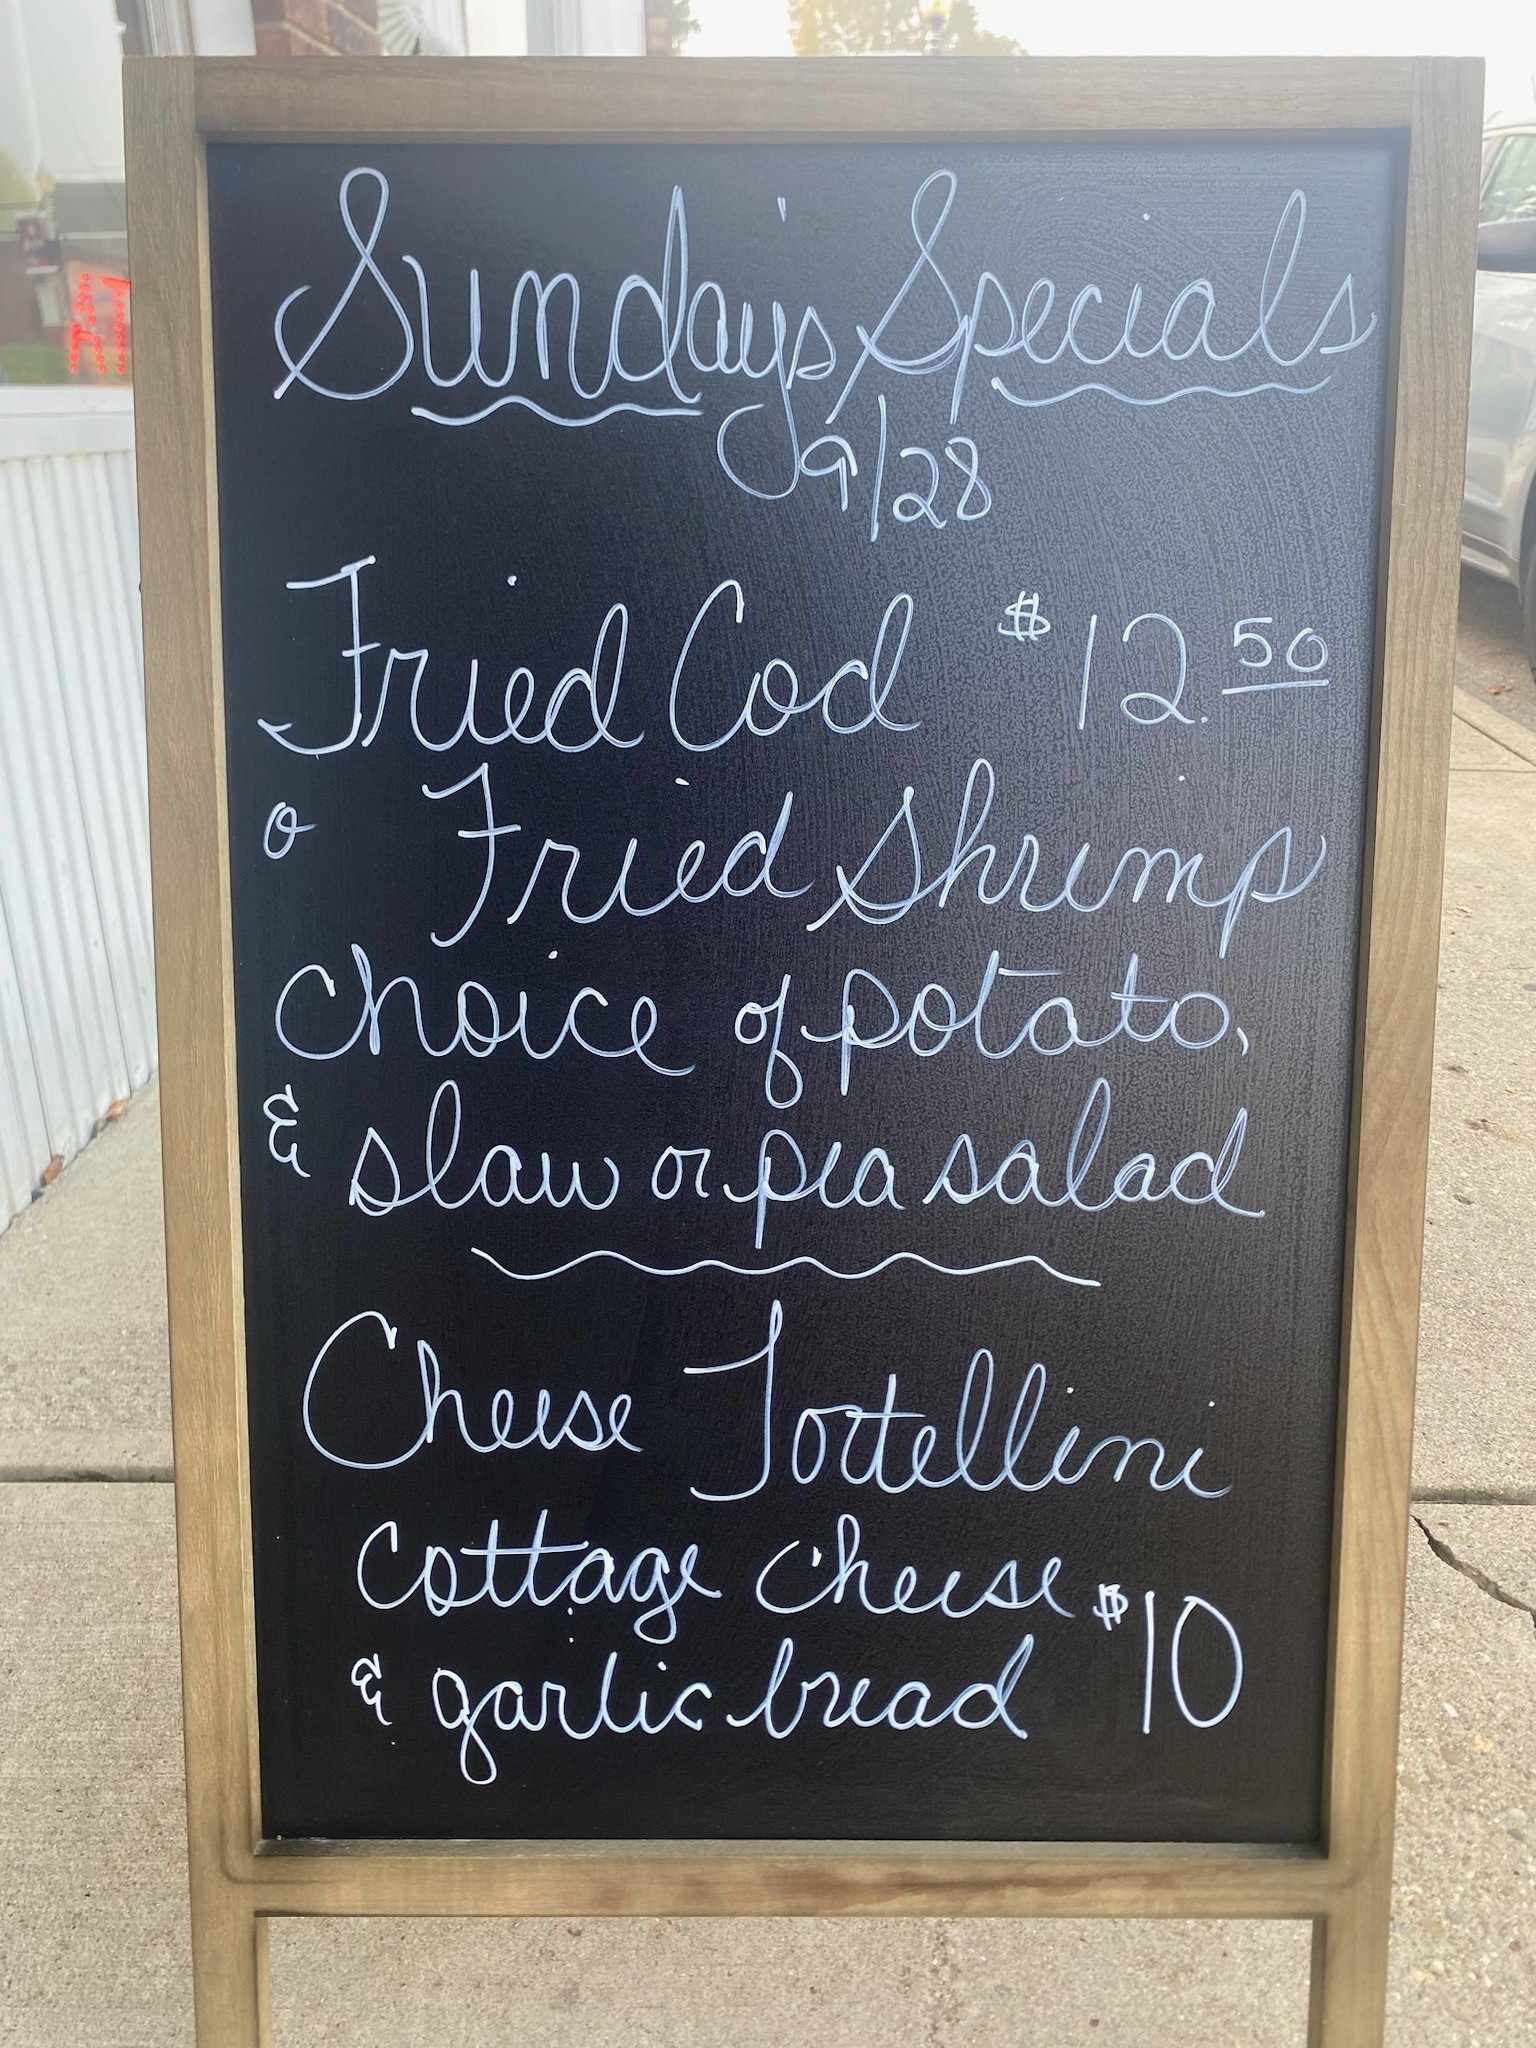 Sunday's Specials
9/28
Fried Cod $12.50
or Fried Shrimp
choice of potato,
& slaw or pea salad
Cheese Tortellini
cottage cheese
& garlic bread $10